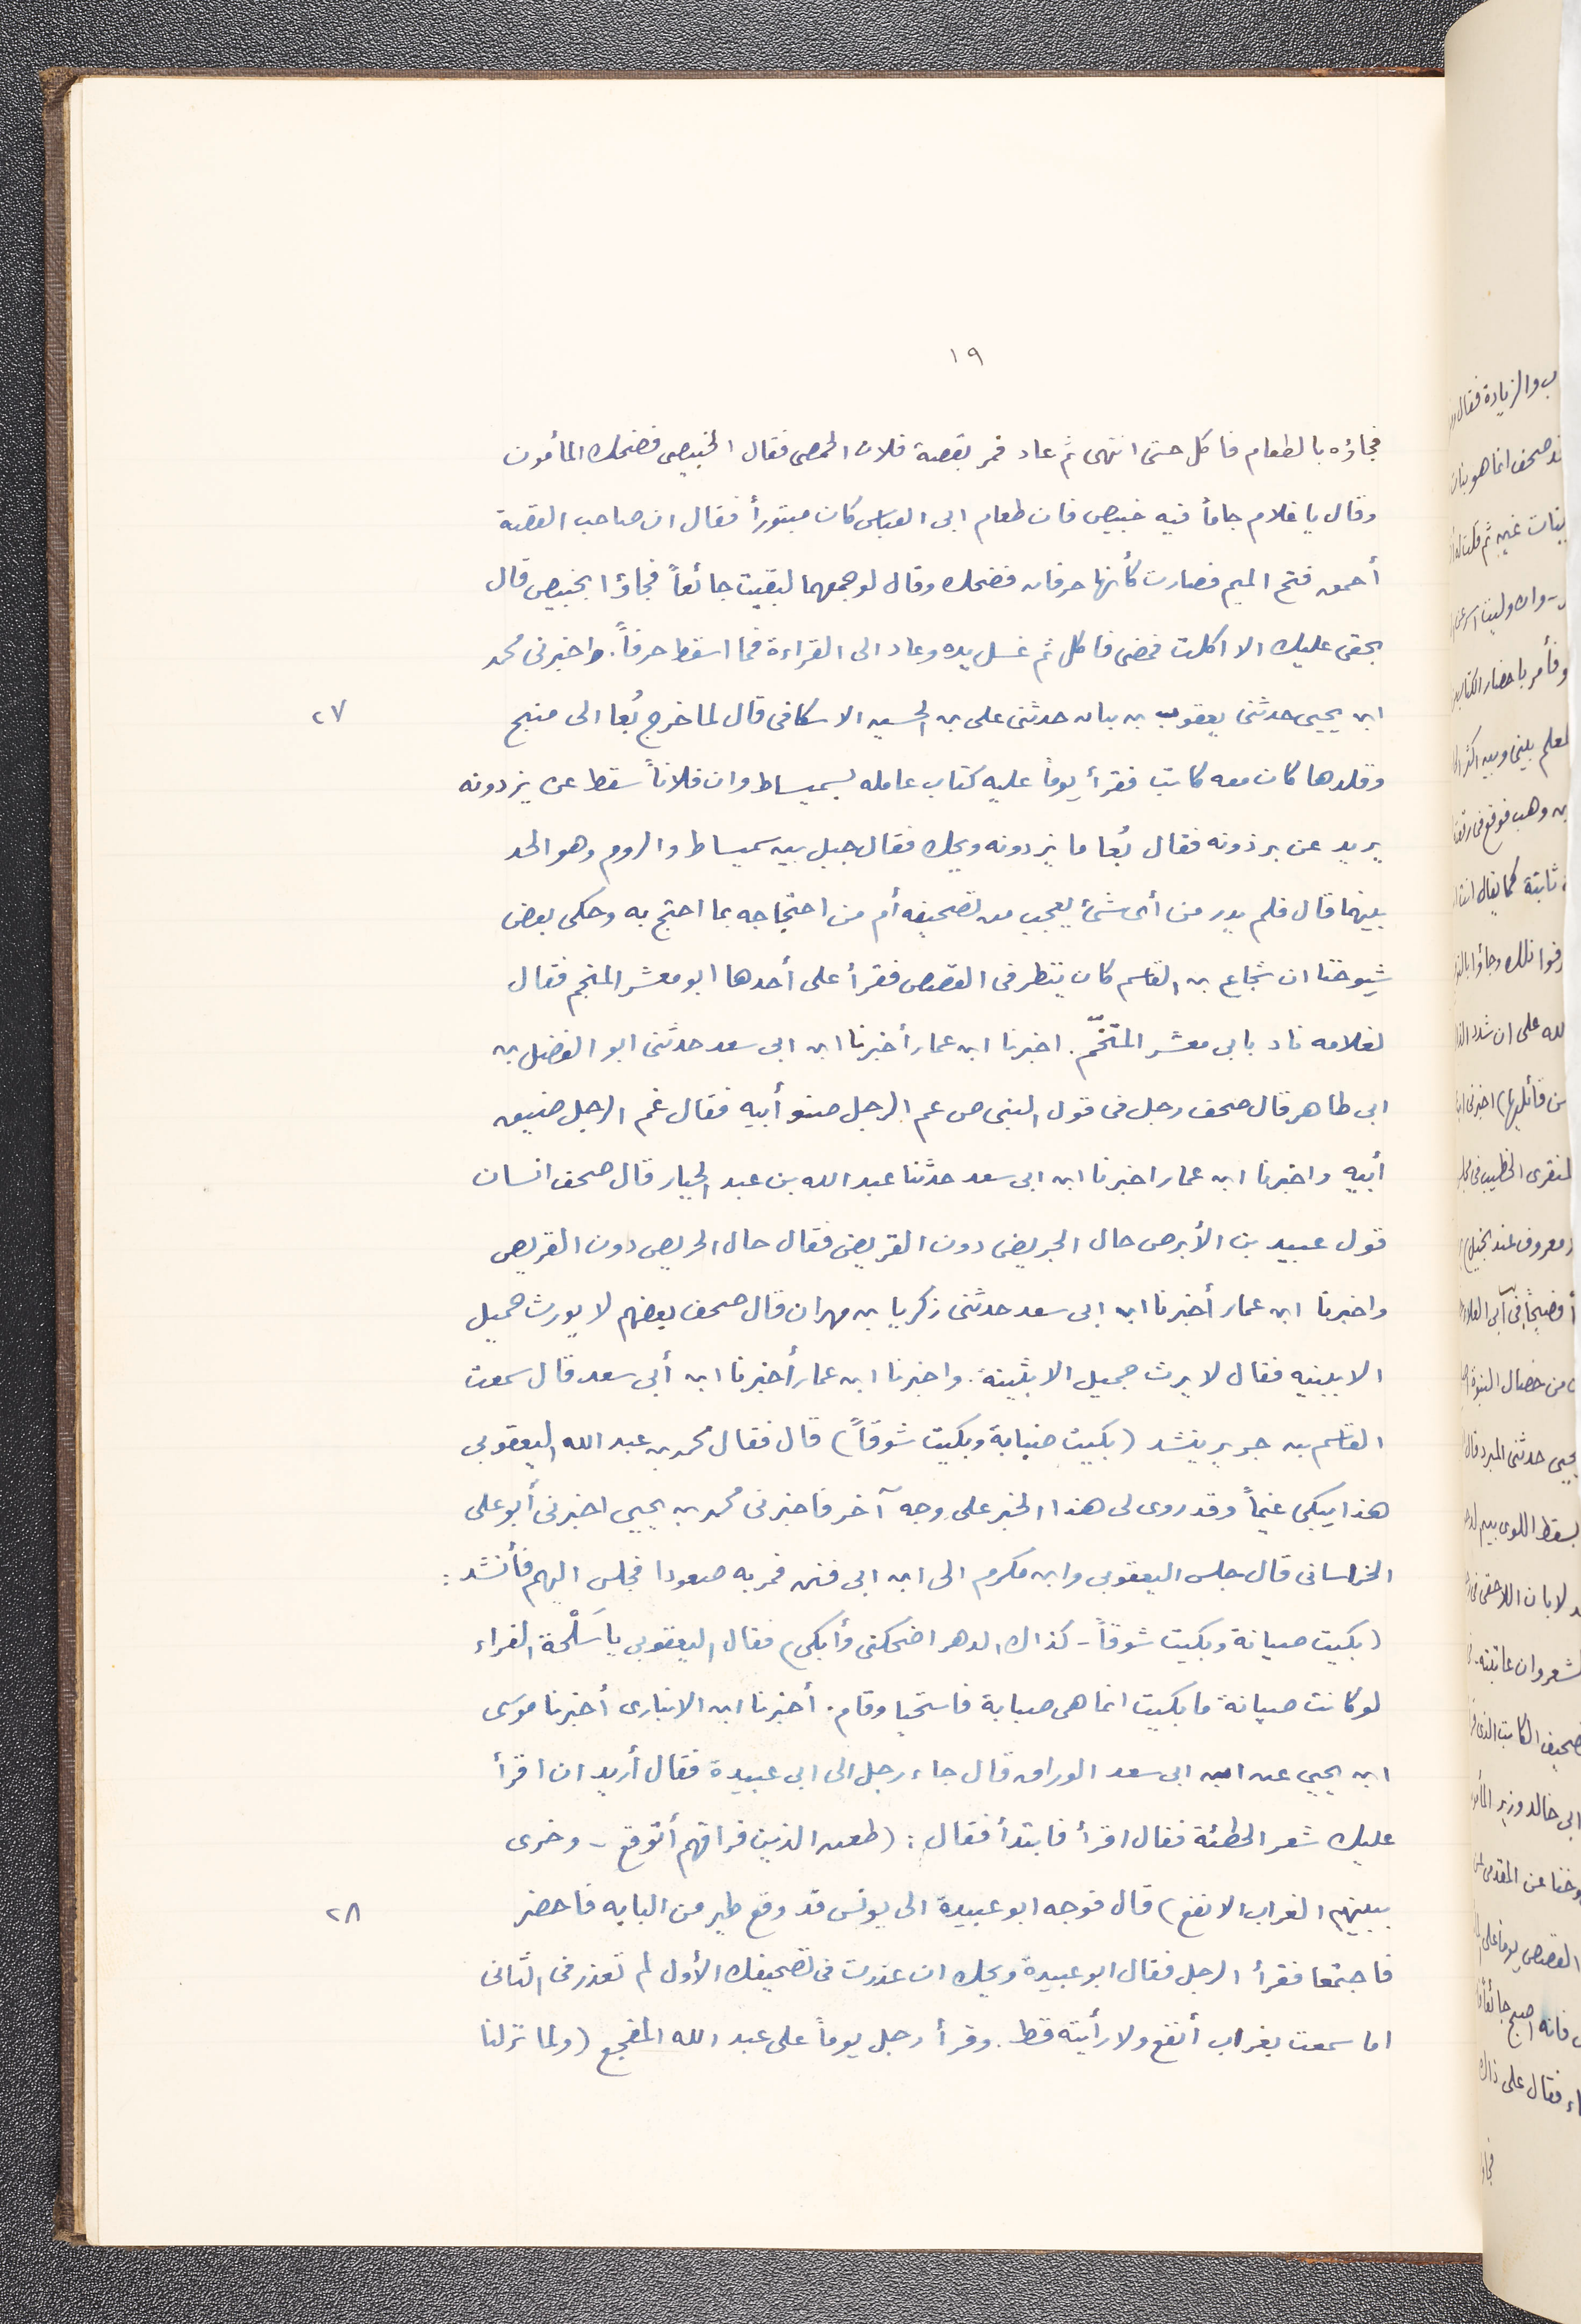 ١٩
فجاؤه بالطعام فاكل حتى انتهى ثم عاد فمر بقصة فلان الحمصى فقال الخبيصى فضحك المأمون
وقال يا غلام جاماً فيه خبيص فان طعام ابى العباس كان مبتوراً فقال ان صاحب القصة
أحمق فتح الميم فصارت كأنها حرفان فضحك وقال لو جمعهما لبقيت جائعاً فجاؤا بخبيص قال
بحقى عليك الا اكلت فمضى فاكل ثم غسل يده وعاد الى القراءة فما اسقط حرفاً. واخبرنى محمد
ابن يحيى حدثنى يعقوب بن بيان حدثنى على بن الحسين الاسكافى قال لما خرج بُغا الى منبج ٢٧
وقلدها كان معه كاتب فقرأ يوماً عليه كتاب عامله بسميساط وان فلاناً سقط عن يزدونه
يريد عن برذونه فقال بُغا ما يزدونه ويحك فقال جبل بين سميساط والروم وهو الحد
بينهما قال فلم يدر من أى شئ يعجب من تصحيفه أم من احتجاجه بما احتج به وحكى بعض
شيوخنا ان شجاع بن القاسم كان ينظر فى القصص فقرأ على أحدها ابو معشر المنجم فقال
لغلامه ناد بابى معشر المتخّم. اخبرنا ابن عمار أخبرنا ابن ابى سعد حدثنى ابو الفضل بن
ابى طاهر قال صحف رجل فى قول النبى ص عم الرجل صنو أبيه فقال غم الرجل ضيق
أبيه واخبرنا ابن عمار اخبرنا ابن ابى سعد حدثنا عبد الله بن عبد الجبار قال صحف انسان
قول عبيد بن الأبرص حال الجريض دون القريض فقال حال الحريص دون القريص
واخبرنا ابن عمار أخبرنا ابن ابى سعد حدثنى زكريا بن مهران قال صحف بعضهم لا يورث حميل
الا ببينه فقال لا يرث جميل الا بثينة. واخبرنا ابن عمار أخبرنا ابن أبى سعد قال سمعت
القاسم بن جرير ينشد (بكيت ضبابة وبكيت شوقاً) قال فقال محمد بن عبد الله اليعقوبى
هذا يبكى غيماً وقد روى لى هذا الخبر على وجه آخر فاخبرنى محمد بن يحيى اخبرنى أبو على
الخراسانى قال جلس اليعقوبى وابن مكرم الى ابن ابى فنن فمر به صعودا فجلس اليهم فأنشد:
(بكيت صيانة وبكيت شوقاً - كذاك الدهر اضحكنى وأبكى) فقال اليعقوبى يا سَلْحة الفراء
لو كانت صيانة ما بكيت انما هى صبابة فاستحيا وقام. أخبرنا ابن الانبارى أخبرنا موسى
ابن يحيى عن ابن ابى سعد الوراق قال جاء رجل الى ابى عبيدة فقال أريد ان اقرأ
عليك شعر الحطئة فقال اقرأ فابتدأ فقال: (طعن الذين فراقهم أتوقع - وخرى
ببينهم الغراب الانقع) قال فوجه ابو عبيدة الى يونس قد وقع طير من البابه فاحضر ٢٨
فاجتمعا فقرأ الرجل فقال ابو عبيدة ويحك ان عذرت فى تصحيفك الأول لم تعذر فى الثانى
اما سمعت بغراب أنقع ولا رأيته قط. وقرأ رجل يوماً على عبد الله المفجع (ولما نزلنا